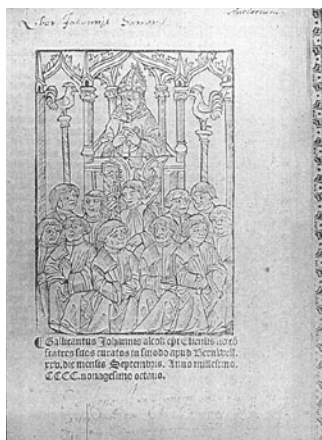 Liber Johannis
¶ Gallicantus Johannis alcok epi Eliensis ad cō
fratres suos curatos in sinodo apud Bernwell.
xxv. die mensis Septembris. Anno millesimo.
CCCC. nonagesimo octauo.